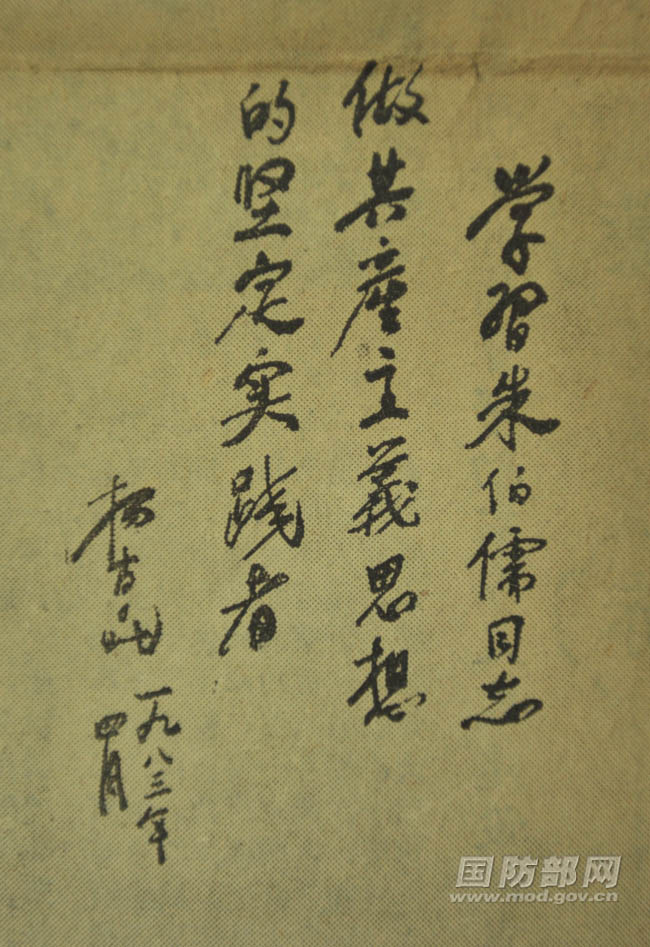 学習朱伯儒同志
做共産主義思想
的坚定实践者
杨尚昆 一九八三年
四月
国防部网
www.mod.gov.cn